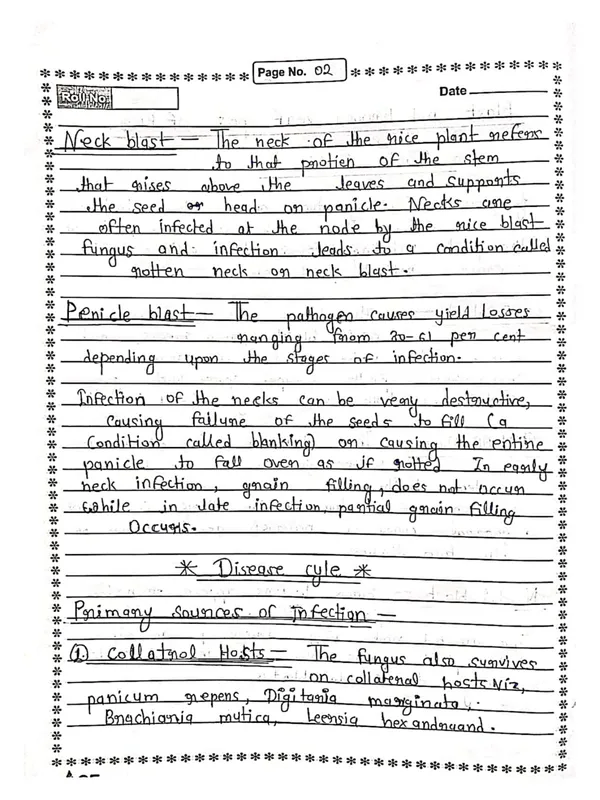 Page No. 02
Roll No.
Date
Neck blast — The neck of the rice plant refers
to that protien of the stem
that rises above the leaves and supports
the seed or head or panicle. Necks are
often infected at the node by the rice blast
fungus and infection leads to a condition called
rotten neck or neck blast.
Penicle blast — The pathogen causes yield Losses
ranging from 30-61 per cent
depending upon the stages of infection.
Infection of the necks can be very destructive,
causing failure of the seeds to fill (a
Condition called blanking) or causing the entire
panicle to fall over as if rotted In early
neck infection, grain filling, does not occur
while in late infection, partial grain filling
Occurs.
* Disease cyle *
Primary Sources of Infection —
(1) Collatrol Hosts — The fungus also survives
on collateral hosts Viz,
panicum repens, Digitaria marginata,
Brachiaria mutica, Leersia hexandraand.